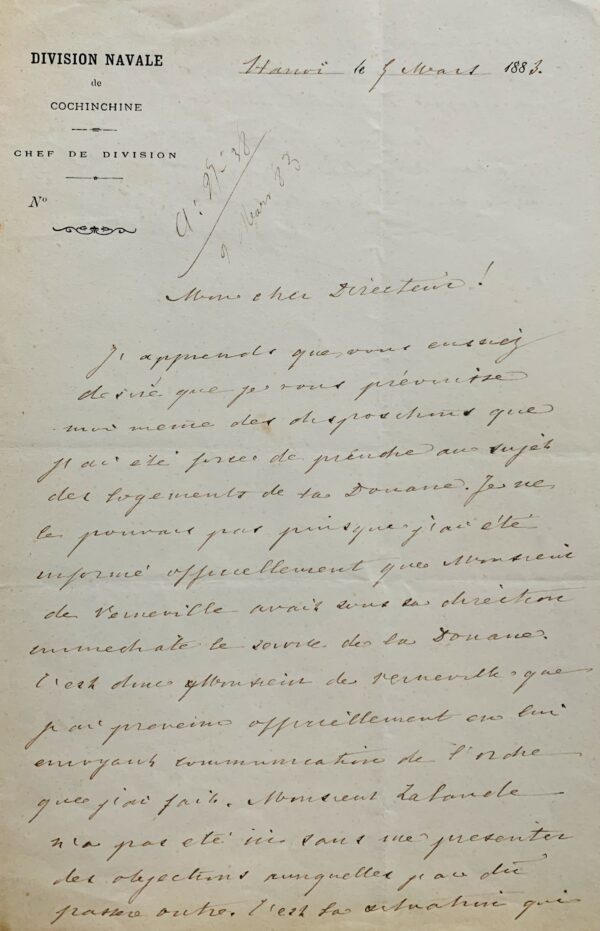 DIVISION NAVALE
de
COCHINCHINE
CHEF DE DIVISION
No
Hanoï le 5 Mars 1883.
9 Mars 83
Mon cher Directeur!
J'apprends que vous eussiez
désiré que je vous prévinsse
moi même des dispositions que
j'ai été forcé de prendre au sujet
des logements de la Douane. Je ne
le pouvais pas puisque j'ai été
informé officiellement que Monsieur
de Verneville avait sous sa direction
immédiate le service de la Douane.
C'est donc Monsieur de Verneville que
j'ai prévenu officiellement en lui
envoyant communication de l'ordre
que j'ai fait. Monsieur Lalande
n'a pas été ici sans me présenter
des objections auxquelles j'ai dû
passer outre. C'est la situation qui